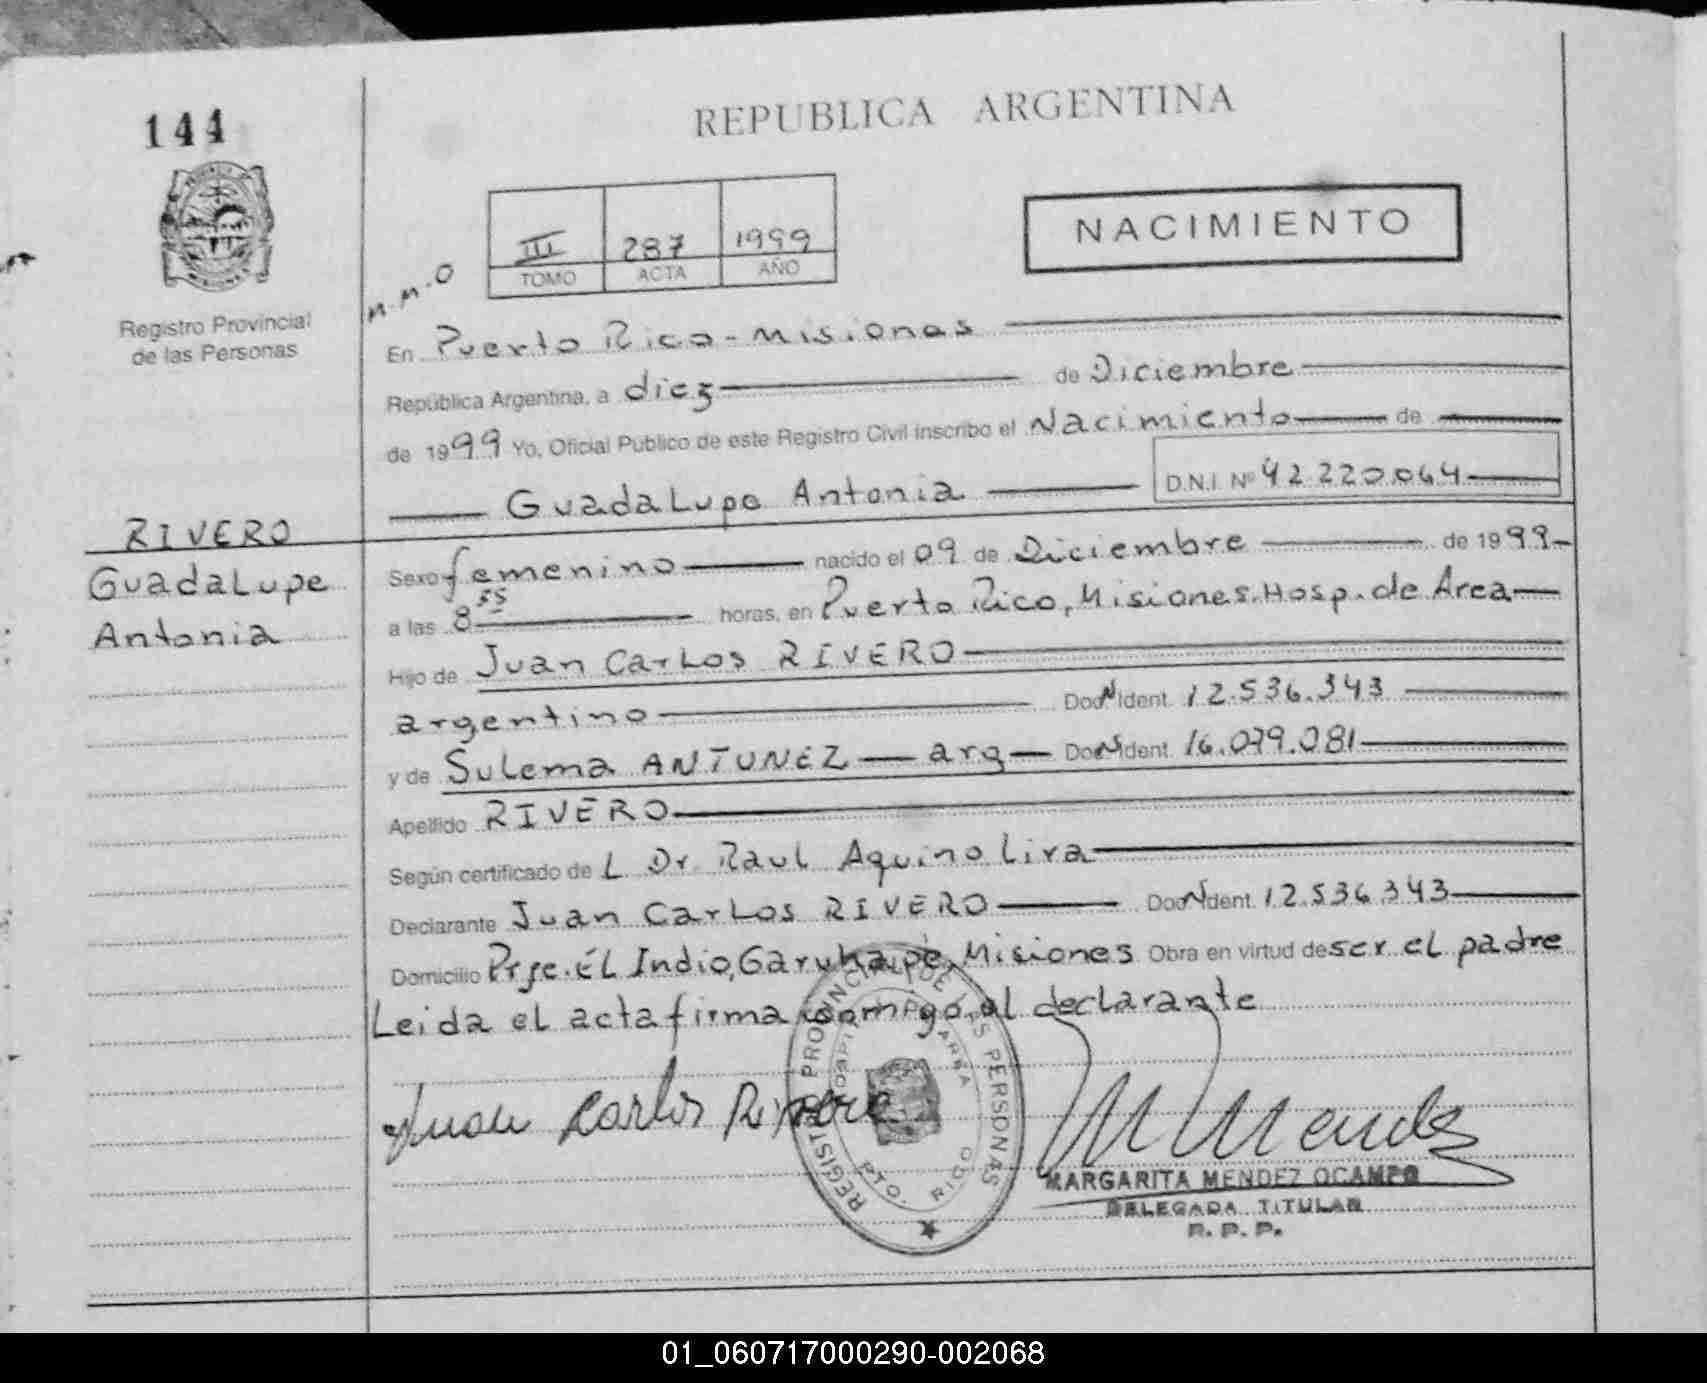 144
REPUBLICA ARGENTINA
NACIMIENTO
III 287 1999
TOMO ACTA AÑO
Registro Provincial
de las Personas
N.N.O
En Puerto Rico - Misiones
República Argentina, a diez de Diciembre
de 1999 Yo, Oficial Público de este Registro Civil inscribo el Nacimiento de
Guadalupe Antonia D.N.I. Nº 42.220.064
RIVERO
Guadalupe
Antonia
Sexo femenino nacido el 09 de Diciembre de 1999
a las 8 55 horas, en Puerto Rico, Misiones. Hosp. de Area
Hijo de Juan Carlos RIVERO
argentino Doc N Ident. 12.536.343
y de Sulema ANTUNEZ arg Doc N Ident. 16.079.081
Apellido RIVERO
Según certificado de L Dr. Raul Aquino Lira
Declarante Juan Carlos RIVERO Doc N Ident. 12.536.343
Domicilio Prje. El Indio, Garuhape, Misiones Obra en virtud de ser el padre
Leida el acta firma comigo, el declarante
Juan Carlos Rivero
M Mendez
REGISTRO PROVINCIAL DE LAS PERSONAS
PTO. RICO
MARGARITA MENDEZ OCAMPO
DELEGADA TITULAR
R. P. P.
01_060717000290-002068